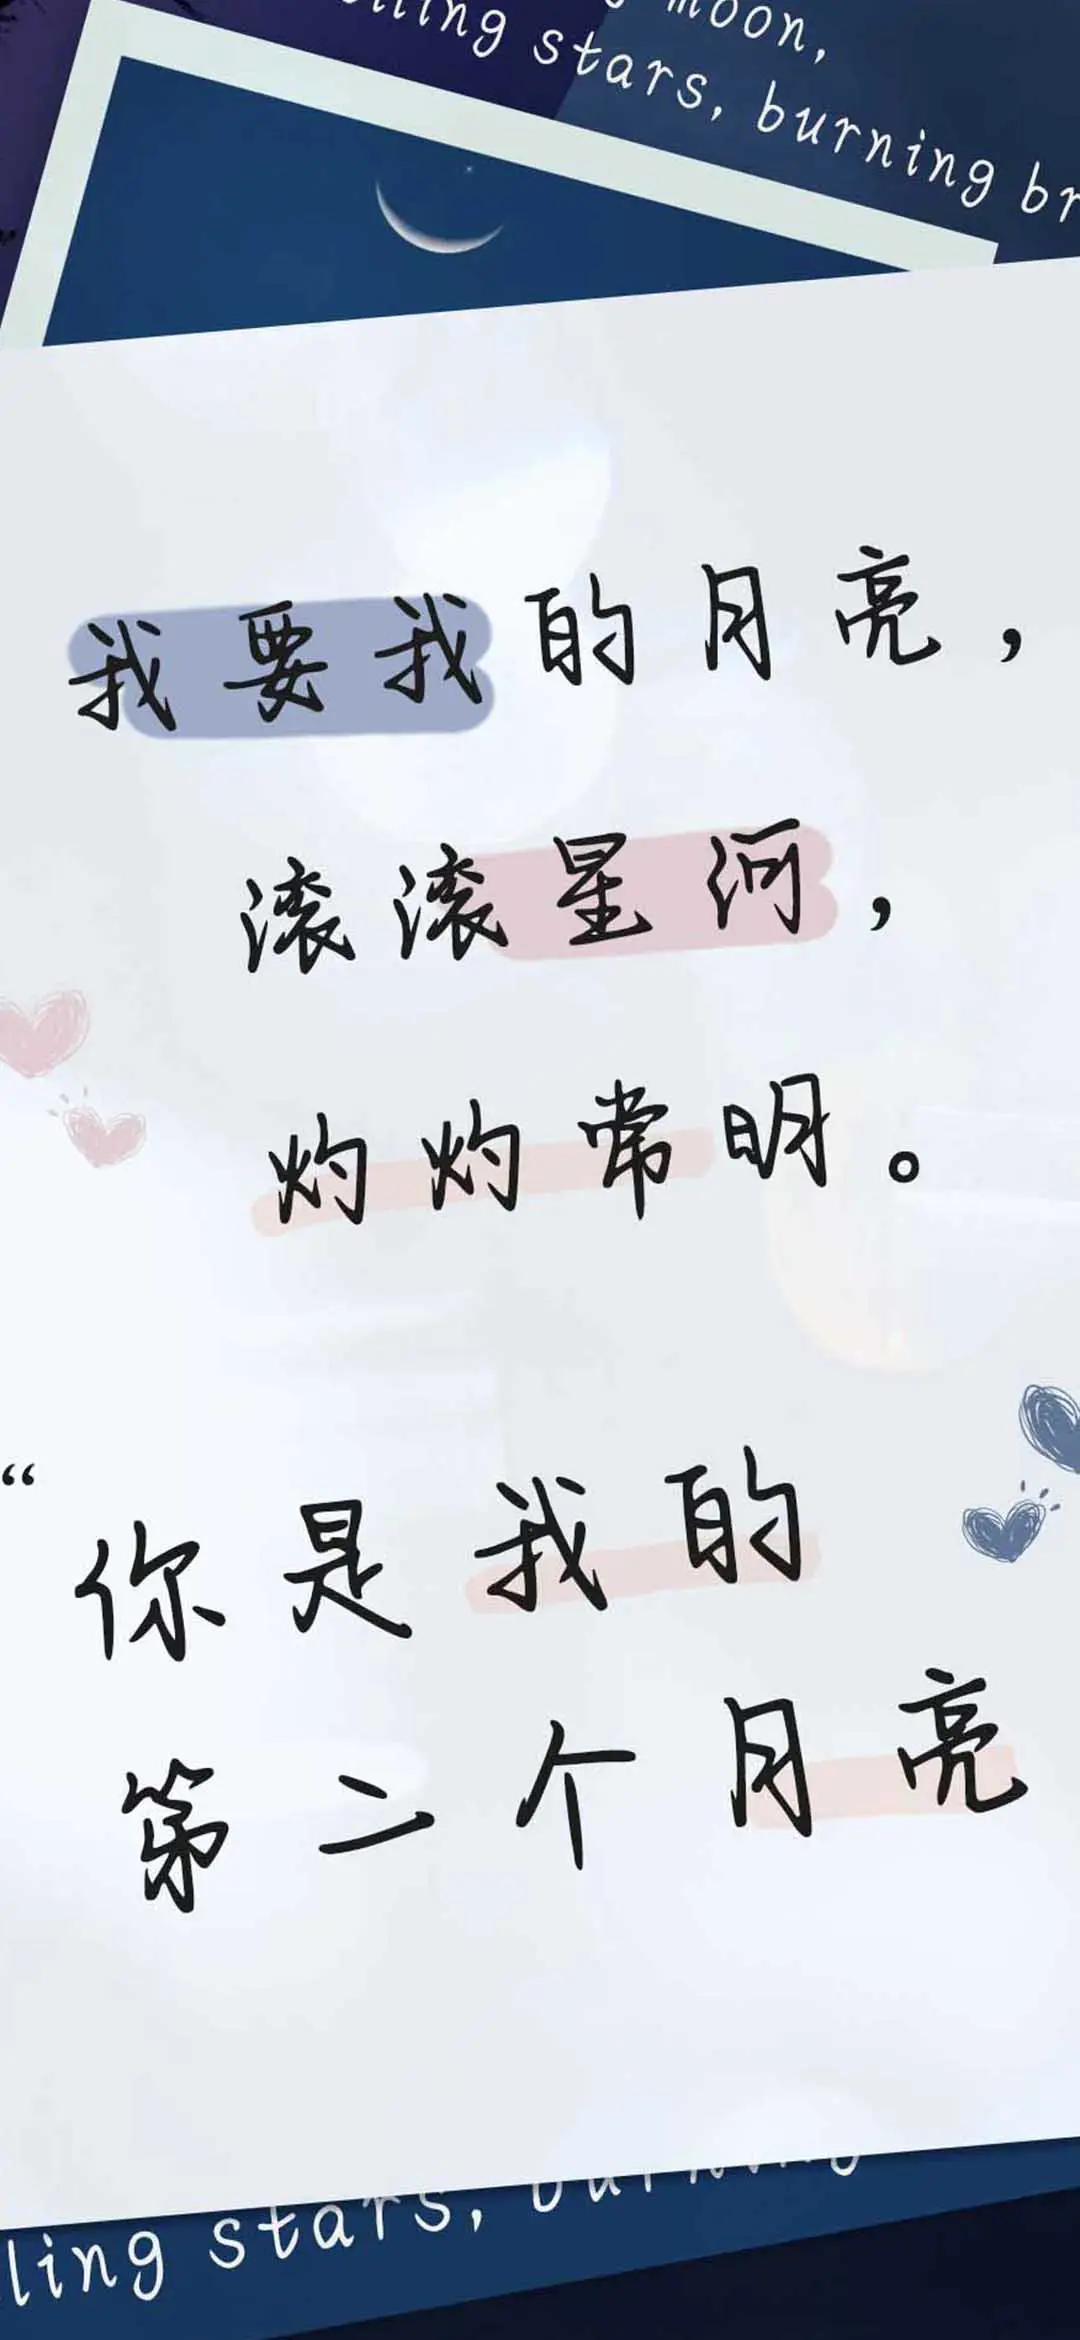 moon,
stars, burning
我要我的月亮，
滚滚星河，
灼灼常明。
“
你是我的
第二个月亮
ling stars,